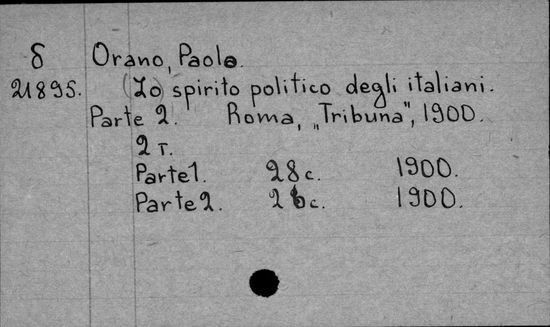 δ Orano, Paola.
21895. (Lo) spirito politico degli italiani.
Parte 2. Roma, „Tribuna", 1900.
2 т.
Parte 1. 28 c. 1900.
Parte 2. c. 1900.